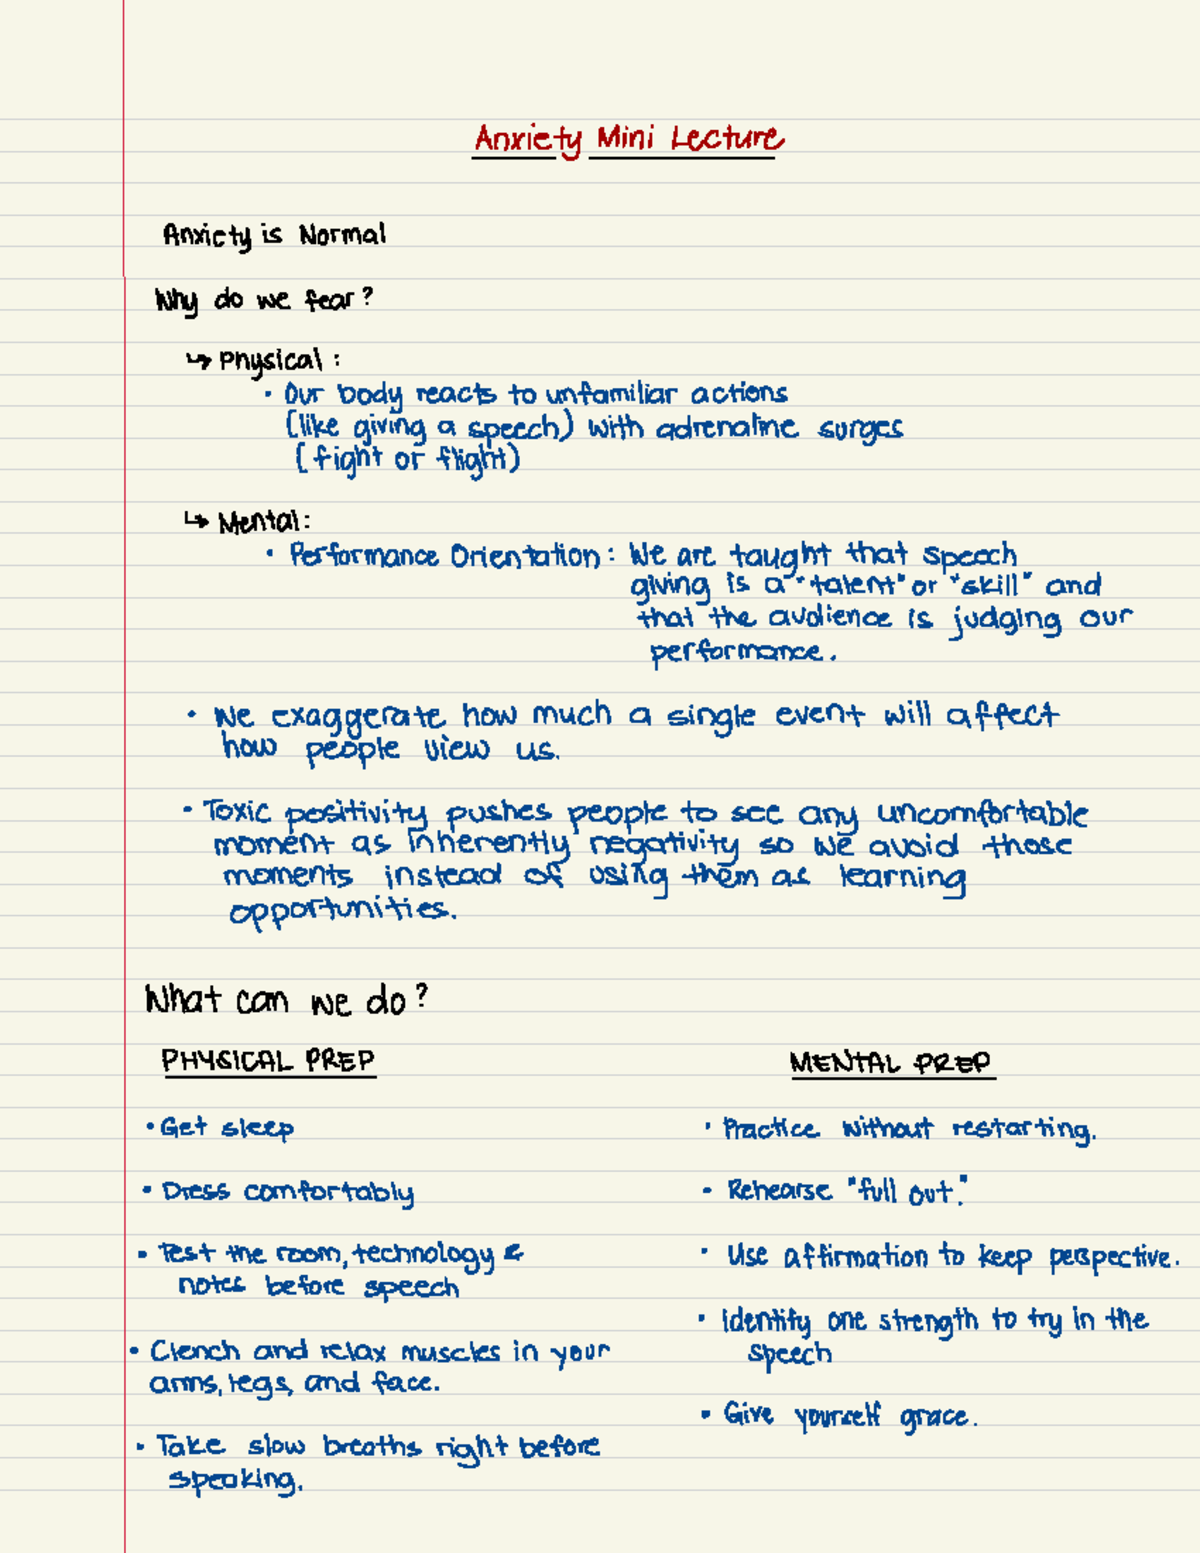 Anxiety Mini Lecture
Anxiety is Normal
Why do we fear?
↳ Physical:
• Our body reacts to unfamiliar actions
(like giving a speech) with adrenaline surges
(fight or flight)
↳ Mental:
• Performance Orientation: We are taught that speech
giving is a "talent" or "skill" and
that the audience is judging our
performance.
• We exaggerate how much a single event will affect
how people view us.
• Toxic positivity pushes people to see any uncomfortable
moment as inherently negativity so we avoid those
moments instead of using them as learning
opportunities.
What can we do?
PHYSICAL PREP
• Get sleep
• Dress comfortably
• Test the room, technology &
notes before speech
• Clench and relax muscles in your
arms, legs, and face.
• Take slow breaths right before
speaking.
MENTAL PREP
• Practice without restarting.
• Rehearse "full out."
• Use affirmation to keep perspective.
• Identify one strength to try in the
speech
• Give yourself grace.